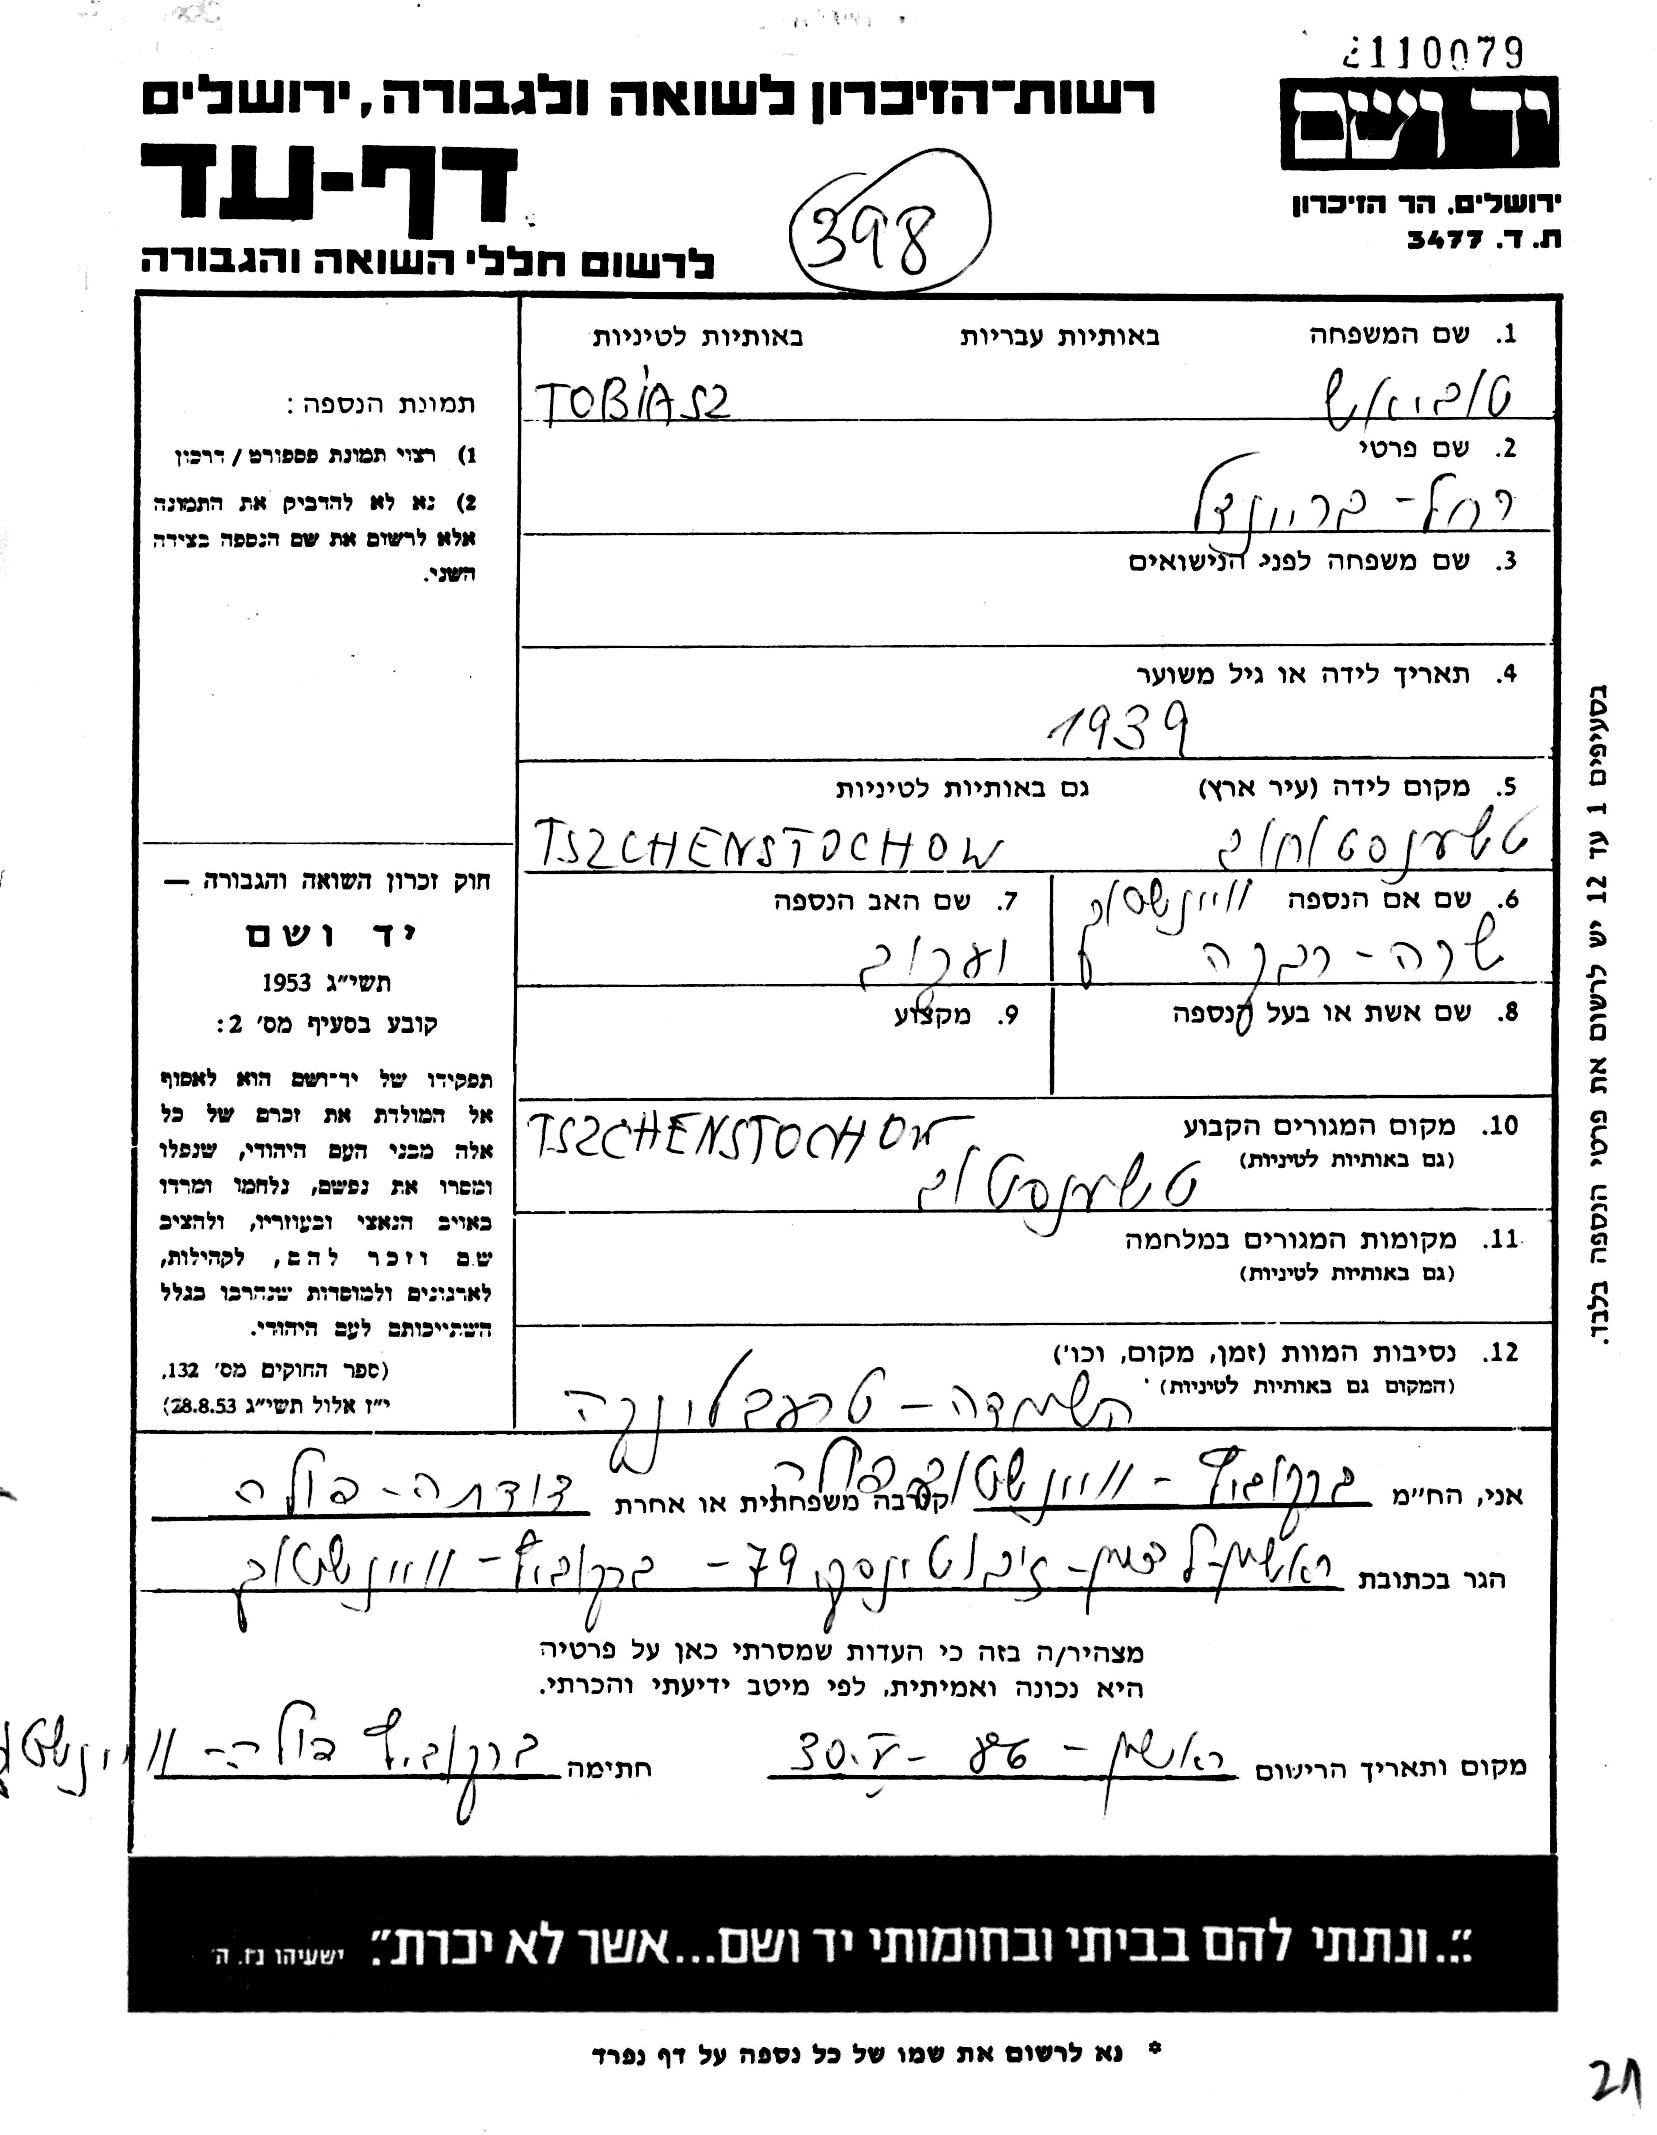 2110079
יד ושם
ירושלים, הר הזיכרון
ת. ד. 3477
רשות־הזיכרון לשואה ולגבורה, ירושלים
דף-עד
לרשום חללי השואה והגבורה
398
1. שם המשפחה באותיות עבריות באותיות לטיניות
טוביאש TOBIASZ
2. שם פרטי
רחל - בריינדל
3. שם משפחה לפני הנישואים
4. תאריך לידה או גיל משוער
1939
5. מקום לידה (עיר ארץ) גם באותיות לטיניות
טשענסטוחוב TSZCHENSTOCHOW
6. שם אם הנספה ווינשטוב
שרה - רבקה
7. שם האב הנספה
יעקוב
8. שם אשת או בעל הנספה
9. מקצוע
10. מקום המגורים הקבוע TSZCHENSTOCHOW
(גם באותיות לטיניות)
טשענסטוב
11. מקומות המגורים במלחמה
(גם באותיות לטיניות)
12. נסיבות המוות (זמן, מקום, וכו')
(המקום גם באותיות לטיניות)
השמדה - טרעבלינקה
תמונת הנספה:
1) רצוי תמונת פספורט / דרכון
2) נא לא להדביק את התמונה
אלא לרשום את שם הנספה בצידה
השני.
חוק זכרון השואה והגבורה —
יד ושם
תשי״ג 1953
קובע בסעיף מס׳ 2:
תפקידו של יד־ושם הוא לאסוף
אל המולדת את זכרם של כל
אלה מבני העם היהודי, שנפלו
ומסרו את נפשם, נלחמו ומרדו
באויב הנאצי ובעוזריו, ולהציב
שם וזכר להם, לקהילות,
לארגונים ולמוסדות שנהרבו בגלל
השתייכותם לעם היהודי.
(ספר החוקים מס׳ 132,
י״ז אלול תשי״ג 28.8.53)
בסעיפים 1 עד 12 יש לרשום את פרטי הנספה בלבד.
אני, הח״מ ברקוביץ - ווינשטוב פולה קרבה משפחתית או אחרת דודתה - פולה
הגר בכתובת ראשון-לציון - זיבוטינסקי 79 - ברקוביץ - ווינשטוב
מצהיר/ה בזה כי העדות שמסרתי כאן על פרטיה
היא נכונה ואמיתית, לפי מיטב ידיעתי והכרתי.
מקום ותאריך הרישום ראשון - 30.V - חתימה ברקוביץ פולה - ווינשטוב
״...ונתתי להם בביתי ובחומותי יד ושם...אשר לא יכרת״. ישעיהו נ״ו. ה׳
* נא לרשום את שמו של כל נספה על דף נפרד